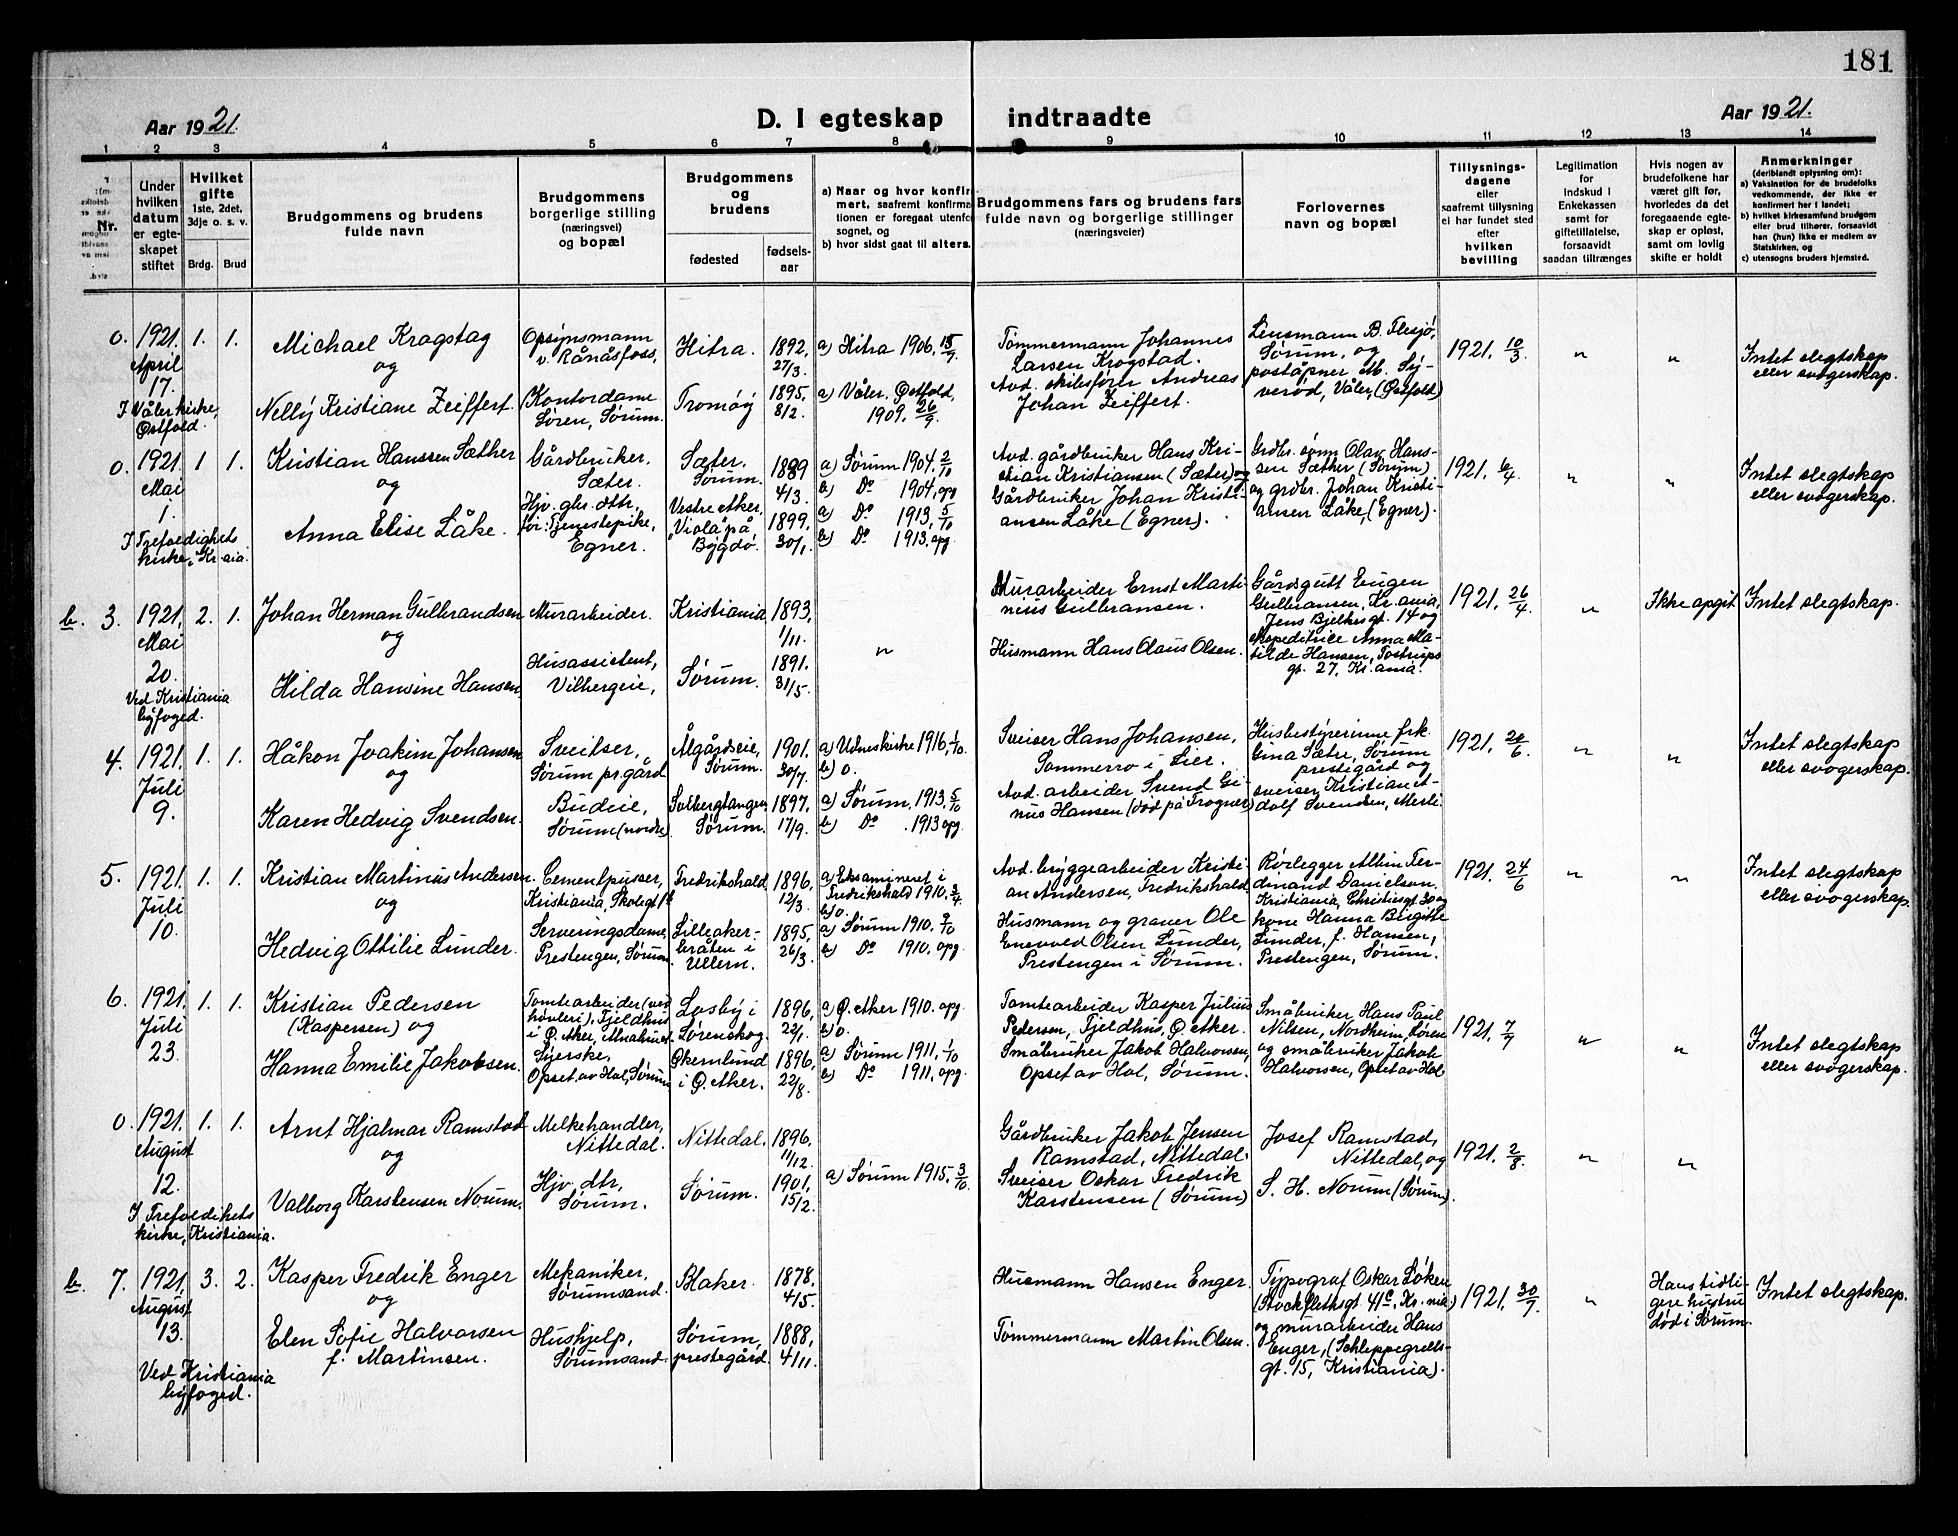 181
Aar 1921.
D. I egteskap indtraadte
Aar 1921.
1 2 3 4 5 6 7 8 9 10 11 12 13 14
Nr.
Under hvilken datum er egteskapet stiftet
Hvilket gifte
1ste, 2det, 3dje o. s. v.
Brdg. Brud
Brudgommens og brudens fulde navn
Brudgommens borgerlige stilling (næringsvei) og bopæl
Brudgommens og brudens
fødested
fødsels-aar
a) Naar og hvor konfirmert, saafremt konfirmationen er foregaat utenfor sognet, og
b) hvor sidst gaat til alters.
Brudgommens fars og brudens fars fulde navn og borgerlige stillinger
(næringsveier)
Forlovernes navn og bopæl
Tillysningsdagene eller saafremt tillysning ei har fundet sted efter hvilken bevilling
Legitimation for indskud i Enkekassen samt for giftetillatelse, forsaavidt saadan tiltrænges
Hvis nogen av brudefolkene har været gift før, hvorledes da det foregaaende egteskap er opløst, samt om lovlig skifte er holdt
Anmerkninger
(deriblandt oplysning om):
a) Vaksination for de brudefolks vedkommende, der ikke er konfirmert her i landet;
b) hvilket kirkesamfund brudgom eller brud tilhører, forsaavidt han (hun) ikke er medlem av Statskirken, og
c) utensogns bruders hjemsted.
0. 1921. April 17. I Våler kirke, Østfold. 1. 1.
Michael Kragstag
og
Nelly Kristiane Zeiffert.
Opsynsmann v. Rånåsfoss,
Kontordame Søren, Sørum.
Hitra. 1892, 27/3.
Tromøy 1895. 8/2.
a) Hitra 1906. 15/9.
a) Våler. Østfold, 1909. 26/9.
Tømmermann Johannes Larsen Krogstad.
Avd. skibsfører Andreas Johan Zeiffert.
Lensmann B. Flesjø, Sørum, og poståpner M. Syverød, Våler, (Østfold)
1921. 10/3. " "
Intet slegtskap eller svogerskap.
0. 1921. Mai 1. I Trefoldighets kirke, Kr.ania. 1 1.
Kristian Hanssen Sæther
og
Anna Elise Låke.
Gårdbruker. Sæter.
Hjv. gbr. dtr. før: Tjenestepike, Egner.
Sæter. Sørum. 1889 4/3.
Vestre Aker. "Viola" på Bygdø. 1899. 30/1.
a) Sørum 1904. 2/10
b) Do 1904. opg
a) Do 1913. 5/10
b) Do 1913. opg
Avd. gårdbruker Hans Kristian Kristiansen (Sæter) og
Gårdbruker Johan Kristiansen Låke (Egner).
Grdbr. sønn Olav Hanssen Sæther (Sørum) og grdbr. Johan Kristiansen Låke, (Egner).
1921. 6/4. " "
Intet slegtskap eller svogerskap.
b. 3. 1921. Mai 20. Ved Kristiania byfoged. 2. 1.
Johan Herman Gulbrandsen
og
Hilda Hansine Hansen
Murarbeider.
Husassistent, Vilbergeie,
Kristiania 1893, 1/11.
Sørum. 1891. 31/5.
"
Murarbeider Ernst Martinius Gulbransen.
Husmann Hans Olaus Olsen.
Gårdsgutt Eugen Gulbransen, Kr.ania, Jens Bjelkesgt. 14 og ekspeditrice Anna Matilde Hansen, Tostrupsgt. 27, Kr.ania.
1921. 26/4. "
Ikke opgit.
Intet slegtskap.
4. 1921. Juli 9. 1. 1.
Håkon Joakim Johansen
og
Karen Hedvig Svendsen.
Sveitser, Sørum pr.gård
Budeie, Sørum (nordre).
Algårdseie, Sørum. 1901. 30/7.
Solbergtangen Sørum. 1897. 17/9.
a) Udneskirke 1916, 1/10.
b) o.
a) Sørum. 1913. 5/10
b) Do. 1913 opg.
Sveiser Hans Johansen, Sommerro i Lier.
Avd. arbeider Svend Ginius Hansen (død på Frogner)
Husbestyrerinne frk. Gina Sætre, Sørum prestegård og sveiser Kristian Adolf Svendsen, Merli
1921. 20/6. " "
Intet slegtskap eller svogerskap.
5. 1921. Juli 10. 1. 1.
Kristian Martinius Andersen.
og
Hedvig Ottilie Lunder.
Cementpusser, Kristiania, Skolegt 18
Serveringsdame, Prestengen, Sørum.
Fredrikshald 1896, 12/3.
Lilleakerbråten i Ullern. 1895. 26/3.
a) Eksamineret i Fredrikshald 1910. 3/4
b) o.
a) Sørum 1910. 9/10
b) Do 1910. opg.
Avd. bryggearbeider Kristian Andersen, Fredrikshald.
Husmann og graver Ole Enevold Olsen Lunder, Prestengen i Sørum.
Rørlegger Albin Ferdinand Danielson. Kristiania, Christiesgt. 30 og kone Hanna Birgitte Lunder, f. Hansen, Prestengen, Sørum.
1921. 24/6 " "
Intet slegtskap eller svogerskap.
6. 1921. Juli 23. 1. 1.
Kristian Pedersen
(Kaspersen) og
Hanna Emilie Jakobsen.
Tomtearbeider (ved høvleri), Fjeldhus i Ø. Aker, Alnabruet.
Syerske, Opset av Hol, Sørum
Losby i Lørenskog. 1896, 22/1.
Økernlund i Ø. Aker. 1896. 22/8.
a) Ø. Aker 1910. opg.
b) o.
a) Sørum 1911. 1/10
b) Do 1911. opg.
Tomtearbeider Kasper Julius Pedersen, Fjeldhus, Ø. Aker.
Småbruker Jakob Halvorsen, Opset av Hol, Sørum.
Småbruker Hans Paul Nilsen, Nordheim, Lørensk. og småbruker Jakob Halvorsen, Opset av Hol
1921. 7/7 " "
Intet slegtskap eller svogerskap.
0. 1921. August 12. I Trefoldihets kirke, Kristiania. 1. 1.
Arnt Hjalmar Ramstad
og
Valborg Karstensen Norum.
Melkehandler, Nittedal.
Hjv. dtr, Sørum.
Nittedal. 1896, 11/12.
Sørum. 1901, 15/2.
a) Sørum 1915. 3/10.
Gårdbruker Jakob Jensen Ramstad, Nittedal.
Sveiser Oskar Fredrik Karstensen (Sørum)
Josef Ramstad, Nittedal, og S. H. Norum (Sørum).
1921. 2/8. " "
b. 7. 1921. August 13. Ved Kristiania byfoged. 3. 2.
Kasper Fredrik Enger
og
Elen Sofie Halvorsen
f. Martinsen.
Mekaniker, Sørumsand.
Hushjelp, Sørumsand.
Blaker. 1878. 4/5.
Sørum, prestegård 1888, 4/11.
Husmann Hansen Enger.
Tømmermann Martin Olsen.
Typograf Oskar Løken (Stockflethsgt. 41c, Kr.nia) og murarbeider Hans Enger, (Schleppegrellsgt. 15, Kristiania).
1921. 30/7. "
Hans tidligere hustru død i Sørum.
Intet slegtskap.